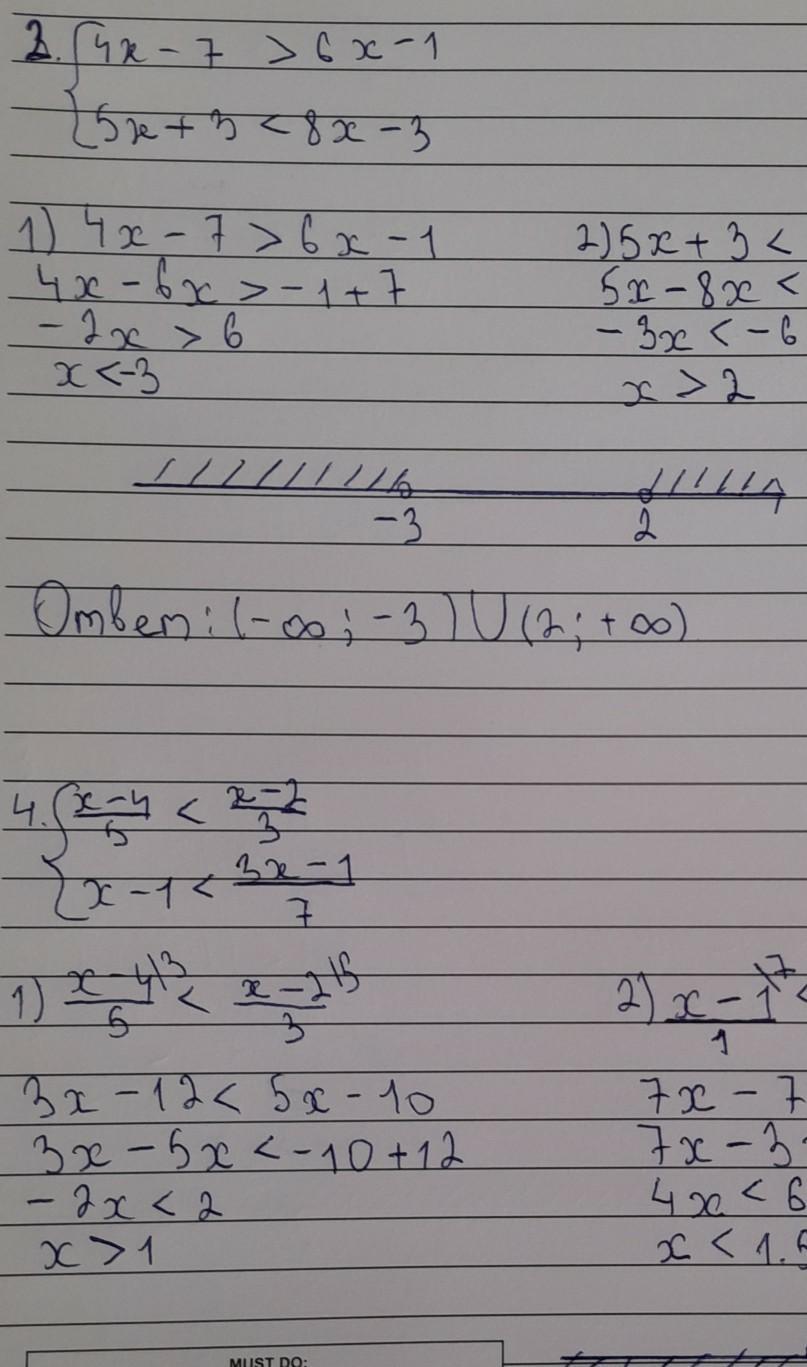 2. { 4x - 7 > 6x - 1
5x + 3 < 8x - 3
1) 4x - 7 > 6x - 1
4x - 6x > -1 + 7
- 2x > 6
x < -3
2) 5x + 3 <
5x - 8x <
- 3x < -6
x > 2
-3 2
Ответ: (-∞; -3) ∪ (2; +∞)
4. { (x-4)/5 < (x-2)/3
x - 1 < (3x - 1)/7
1) (x - 4\3)/5 < (x - 2\5)/3
3x - 12 < 5x - 10
3x - 5x < -10 + 12
- 2x < 2
x > 1
2) (x - 1\7)/1 <
7x - 7
7x - 3
4x < 6
x < 1.5
MUST DO: